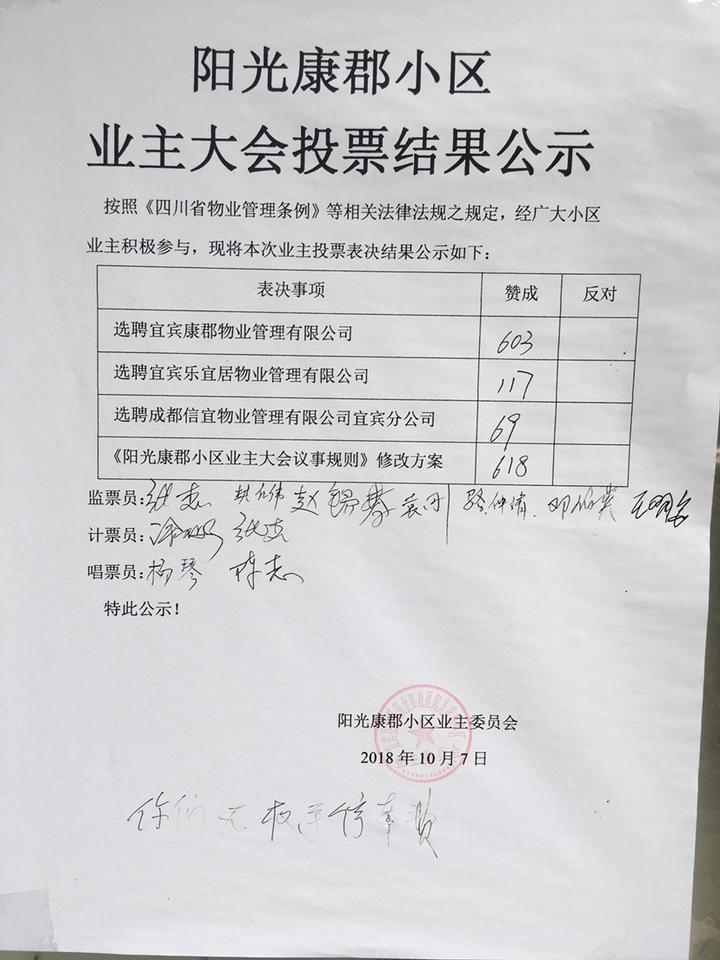 阳光康郡小区
业主大会投票结果公示
按照《四川省物业管理条例》等相关法律法规之规定，经广大小区
业主积极参与，现将本次业主投票表决结果公示如下：
表决事项 赞成 反对
选聘宜宾康郡物业管理有限公司 603
选聘宜宾乐宜居物业管理有限公司 117
选聘成都信宜物业管理有限公司宜宾分公司 69
《阳光康郡小区业主大会议事规则》修改方案 618
监票员：
计票员：
唱票员：杨琴 陈志
特此公示！
阳光康郡小区业主委员会
2018年10月7日
你们无权 停车费